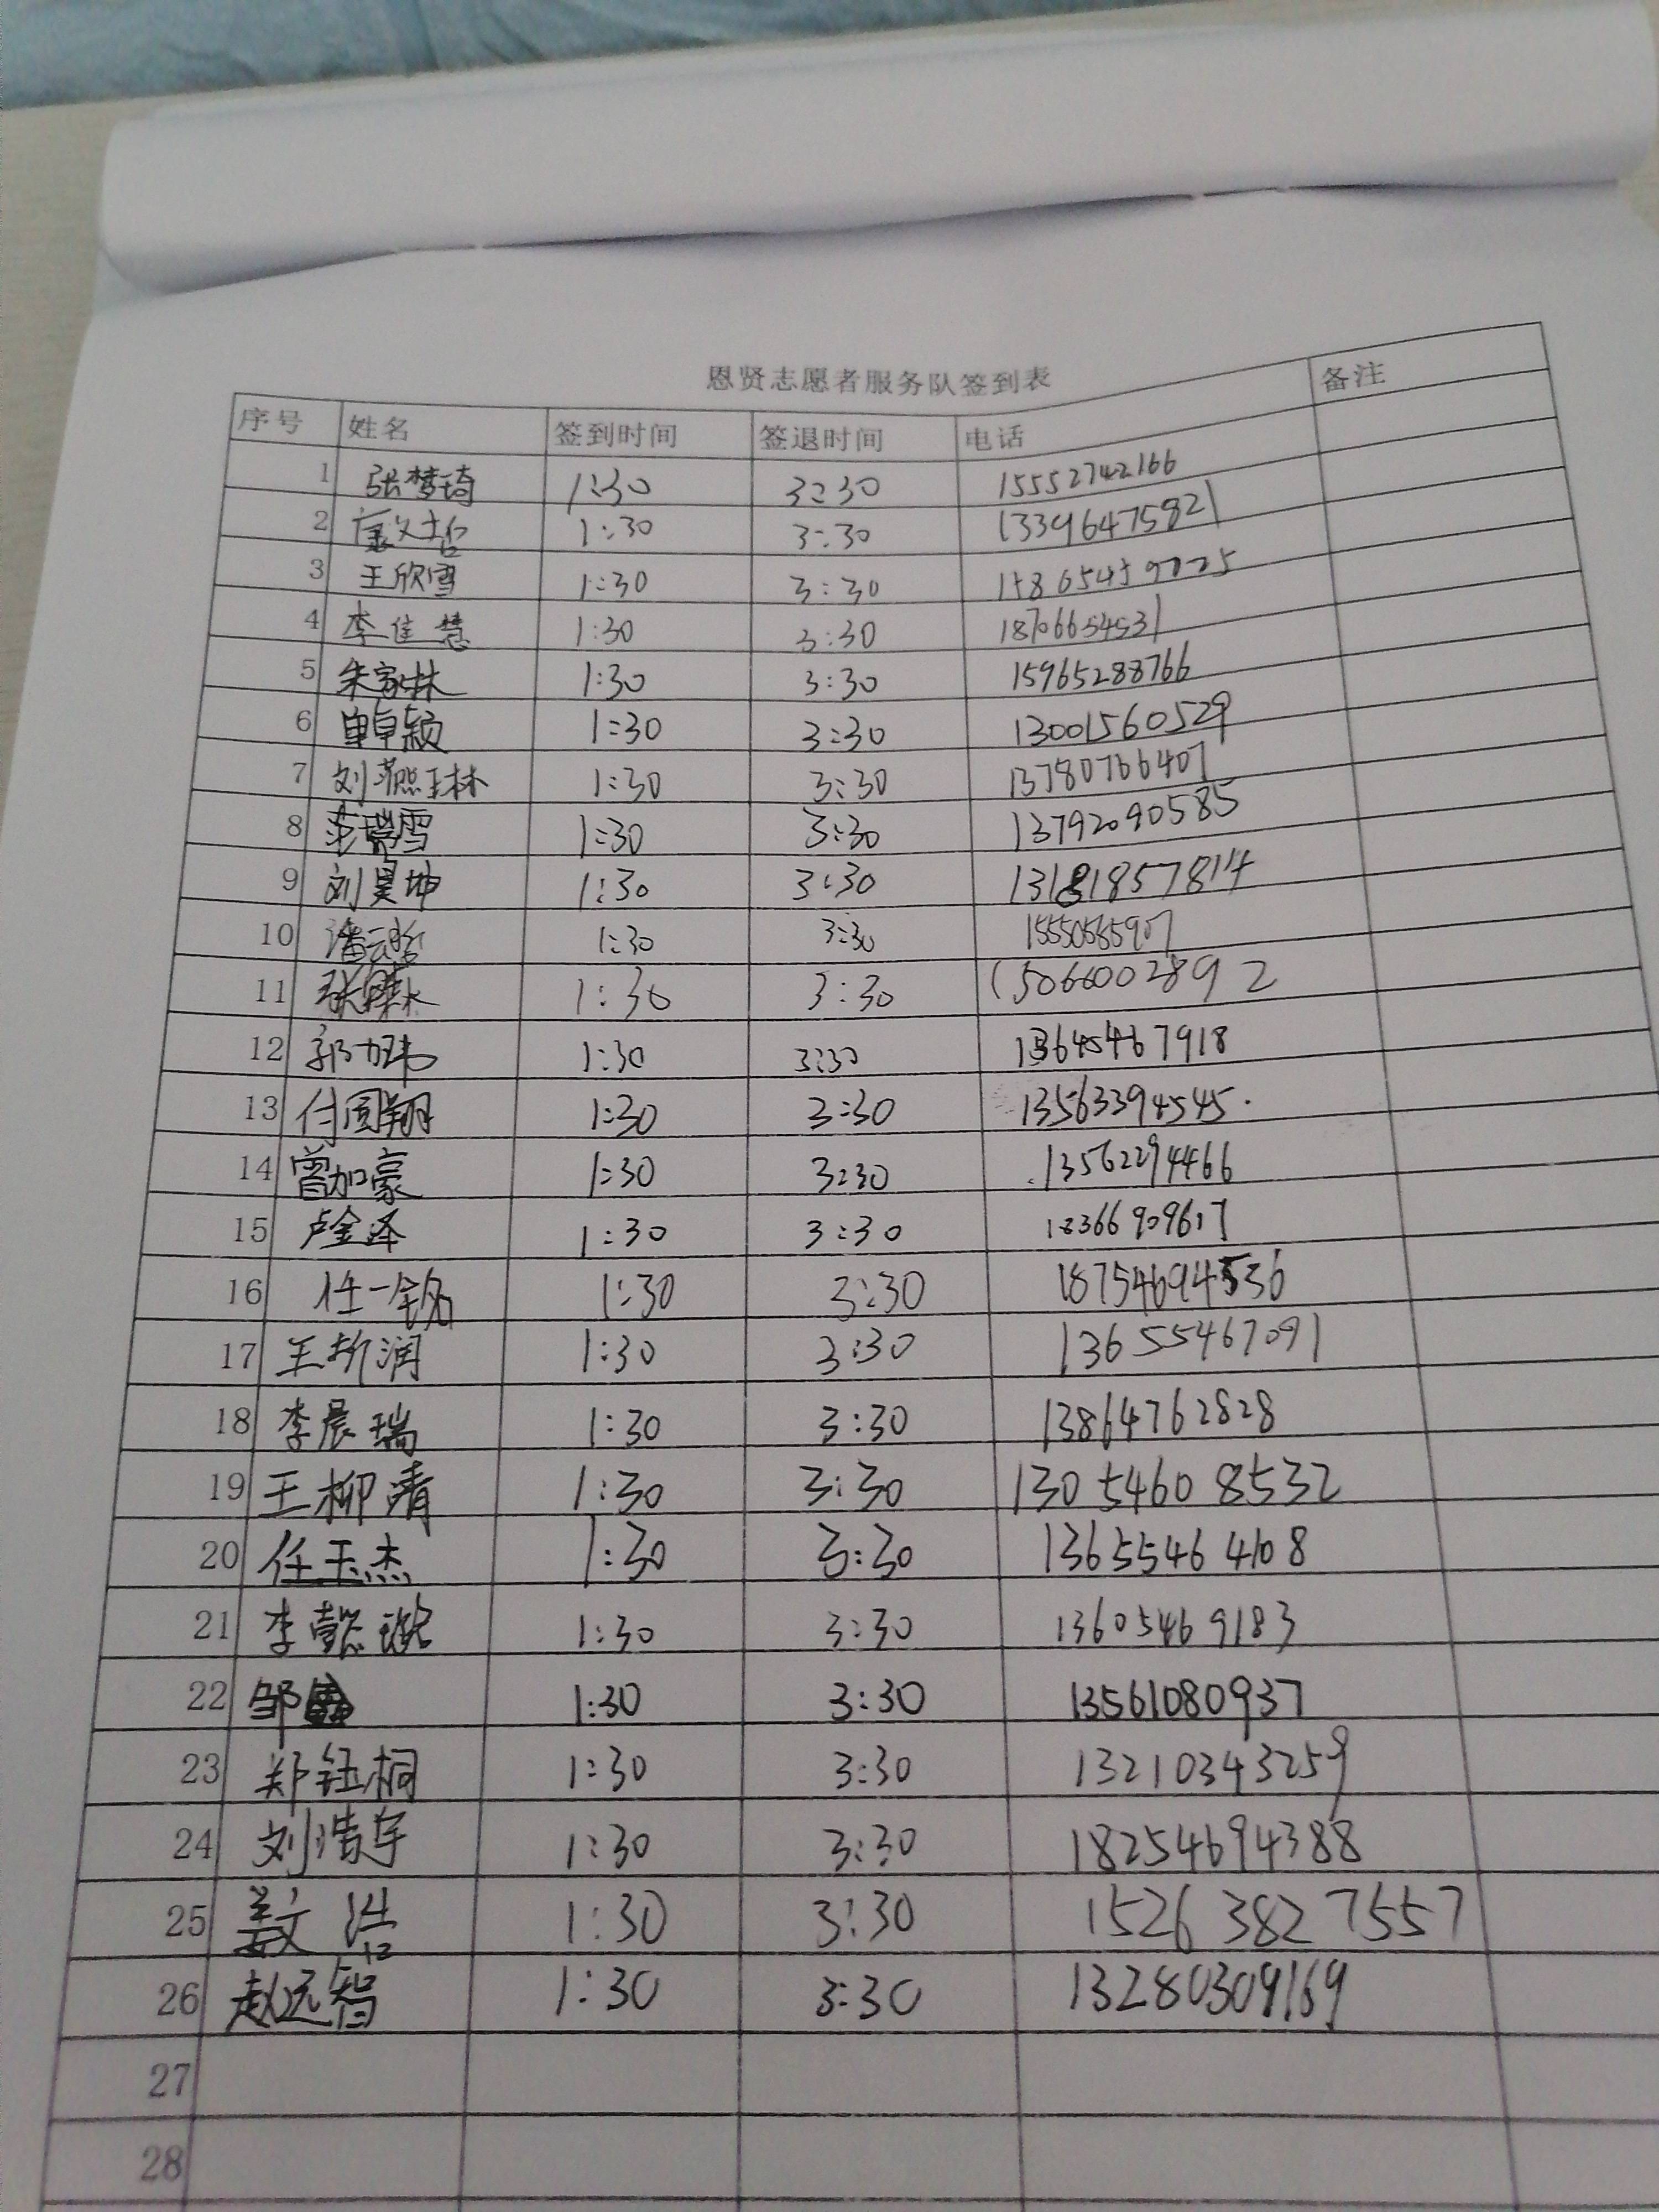 恩贤志愿者服务队签到表
序号 姓名 签到时间 签退时间 电话 备注
1 张梦琦 1:30 3:30 15552742166
2 1:30 3:30 13396475821
3 王欣雪 1:30 3:30
4 李佳慧 1:30 3:30 18706654531
5 朱家林 1:30 3:30 15965288766
6 单卓颖 1:30 3:30 13001560529
7 刘 1:30 3:30 13780766407
8 范瑞雪 1:30 3:30 13792090585
9 刘昊坤 1:30 3:30 13181857814
10 潘云皓 1:30 3:30 15550585907
11 张 1:30 3:30 15066002892
12 郭力玮 1:30 3:30 13645467918
13 付圆翔 1:30 3:30 13563394545
14 曾加豪 1:30 3:30 13562294466
15 卢金泽 1:30 3:30 18366909617
16 任一铭 1:30 3:30 18754694536
17 王析润 1:30 3:30 13655467091
18 李晨瑞 1:30 3:30 13864762828
19 王柳清 1:30 3:30 13054608532
20 任玉杰 1:30 3:30 13655464108
21 李懿璇 1:30 3:30 13605469183
22 邹 1:30 3:30 13561080937
23 郑钰桐 1:30 3:30 13210343259
24 刘浩宇 1:30 3:30 18254694388
25 姜文浩 1:30 3:30 15263827557
26 赵远智 1:30 3:30 13280309169
27
28